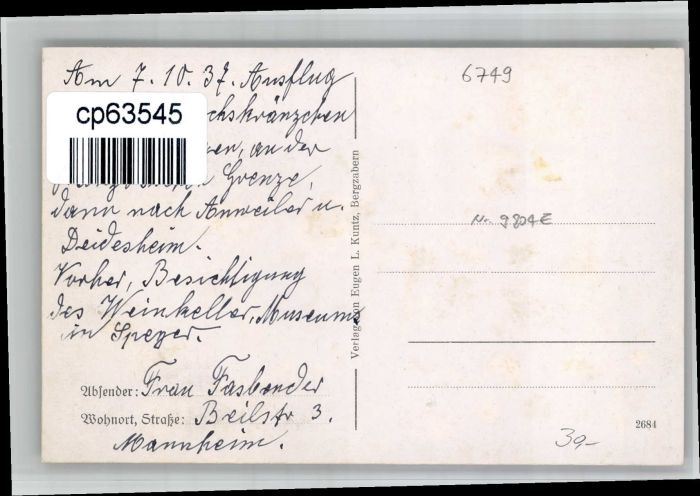 Am 7.10.37. Ausflug
cp63545
chskränzchen
en, an der
Grenze,
dann nach Anweiler u.
Deidesheim.
Vorher, Besichtigung
des Weinkeller, Museums
in Speyer.
Absender: Frau Fasbender
Wohnort, Straße: Beilstr 3.
Mannheim.
Verlag von Eugen L. Kuntz, Bergzabern
6749
Nr. 9804E
2684
39-